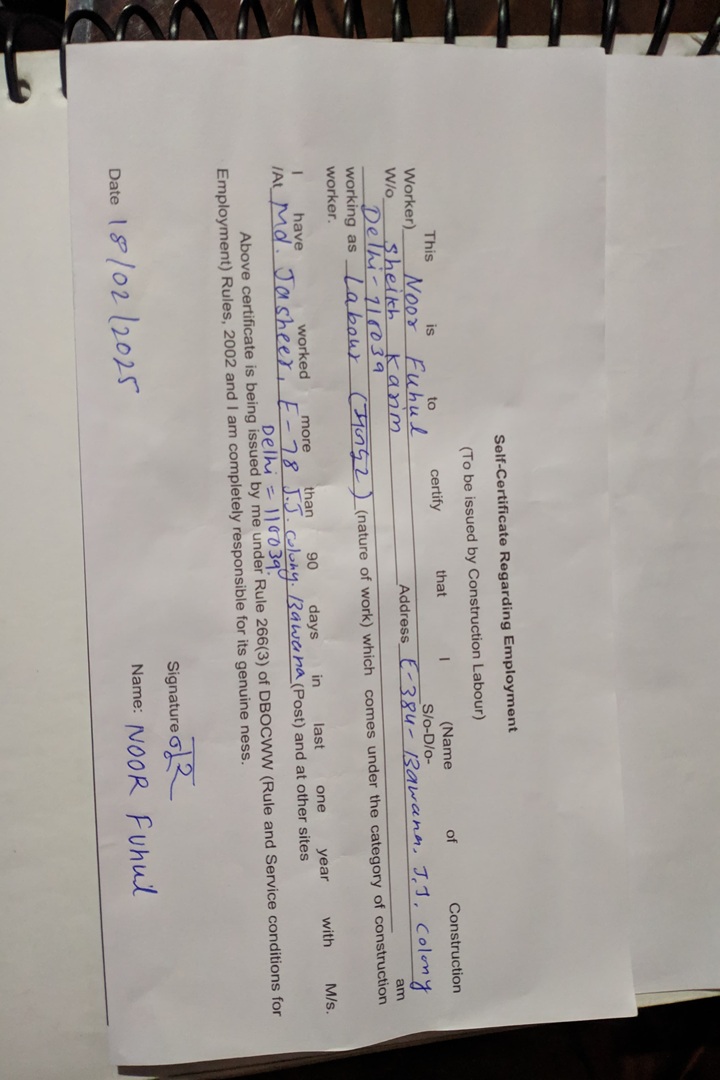 Self-Certificate Regarding Employment
(To be issued by Construction Labour)
This is to certify that I (Name of Construction
Worker) Noor Fuhul S/o-D/o-
W/o Sheikh Karim Address E-384- Bawana, J.J. Colony am
Delhi-110039
working as Labour ( ) (nature of work) which comes under the category of construction
worker.
I have worked more than 90 days in last one year with M/s.
/At Md. Jasheer, E-78 J.J. colony. Bawana (Post) and at other sites
Delhi = 110039.
Above certificate is being issued by me under Rule 266(3) of DBOCWW (Rule and Service conditions for
Employment) Rules, 2002 and I am completely responsible for its genuine ness.
Signature
Date 18/02/2025
Name: NOOR Fuhul